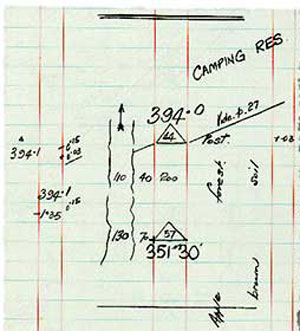 CAMPING RES
394·0
Vide. p. 27
44
Post.
0·15
0·03
394·1
+·03
110 40 200
forest
soil
394·1
0·15
-1·35
130 70
57
351°30'
brown